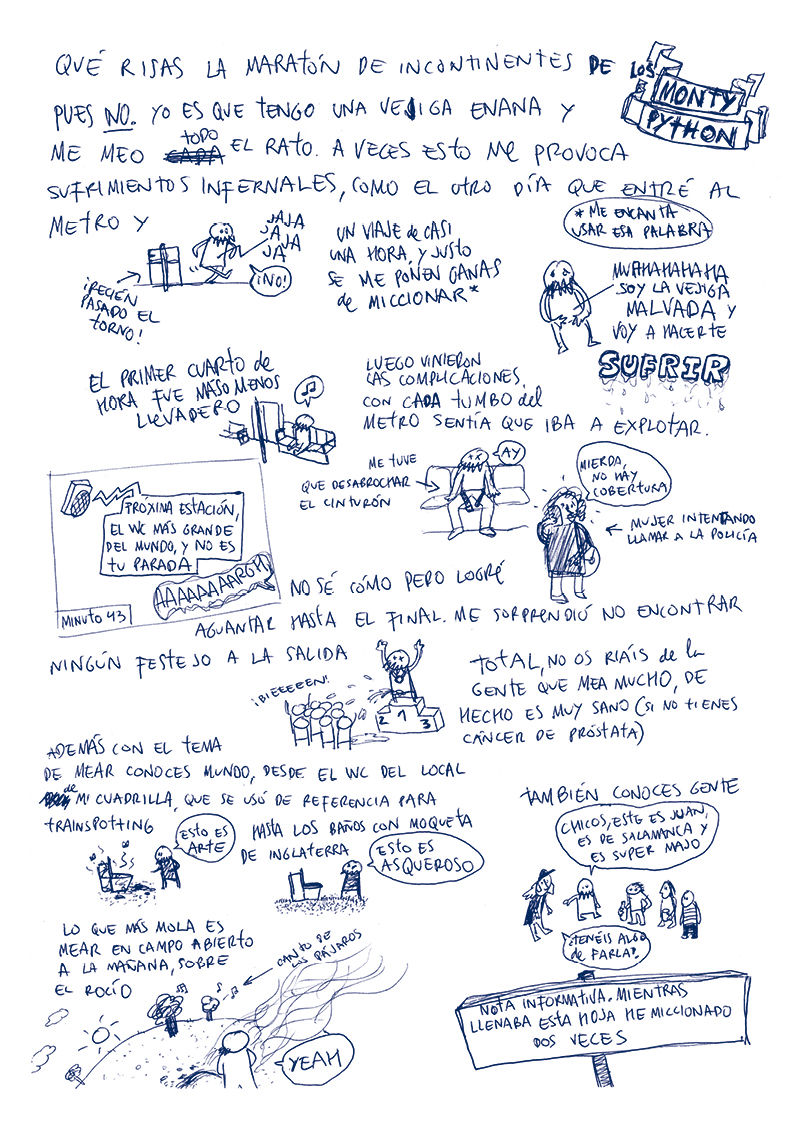 QUÉ RISAS LA MARATÓN DE INCONTINENTES DE LOS
MONTY
PYTHON
PUES NO. YO ES QUE TENGO UNA VEJIGA ENANA Y
ME MEO TODO EL RATO. A VECES ESTO ME PROVOCA
SUFRIMIENTOS INFERNALES, COMO EL OTRO DÍA QUE ENTRÉ AL
METRO Y
JAJA
JA JA
JA JA
¡NO!
¡RECIÉN
PASADO EL
TORNO!
UN VIAJE de CASI
UNA HORA, Y JUSTO
SE ME PONEN GANAS
de MICCIONAR*
* ME ENCANTA
USAR ESA PALABRA
MUAHAHAHAHA
SOY LA VEJIGA
MALVADA Y
VOY A HACERTE
SUFRIR
EL PRIMER CUARTO de
HORA FUE MASO MENOS
LLEVADERO
LUEGO VINIERON
LAS COMPLICACIONES,
CON CADA TUMBO del
METRO SENTÍA QUE IBA A EXPLOTAR.
ME TUVE
QUE DESABROCHAR
EL CINTURÓN
AY
MIERDA,
NO HAY
COBERTURA
MUJER INTENTANDO
LLAMAR A LA POLICÍA
PRÓXIMA ESTACIÓN,
EL WC MÁS GRANDE
DEL MUNDO, Y NO ES
TU PARADA
AAAAAAAARGH
MINUTO 43
NO SÉ CÓMO PERO LOGRÉ
AGUANTAR HASTA EL FINAL. ME SORPRENDIÓ NO ENCONTRAR
NINGÚN FESTEJO A LA SALIDA
¡BIEEEEEN!
2 1 3
TOTAL, NO OS RIÁIS de la
GENTE QUE MEA MUCHO, DE
HECHO ES MUY SANO (SI NO TIENES
CÁNCER DE PRÓSTATA)
ADEMÁS CON EL TEMA
DE MEAR CONOCES MUNDO, DESDE EL WC DEL LOCAL
de MI CUADRILLA, QUE SE USÓ DE REFERENCIA PARA
TRAINSPOTTING
ESTO ES
ARTE
HASTA LOS BAÑOS CON MOQUETA
DE INGLATERRA
ESTO ES
ASQUEROSO
TAMBIÉN CONOCES GENTE
CHICOS, ESTE ES JUAN,
ES DE SALAMANCA Y
ES SUPER MAJO
¿TENÉIS ALGO
de FARLA?
LO QUE MÁS MOLA ES
MEAR EN CAMPO ABIERTO
A LA MAÑANA, SOBRE
EL ROCÍO
CANTO DE
LOS PÁJAROS
YEAH
NOTA INFORMATIVA. MIENTRAS
LLENABA ESTA HOJA HE MICCIONADO
DOS VECES